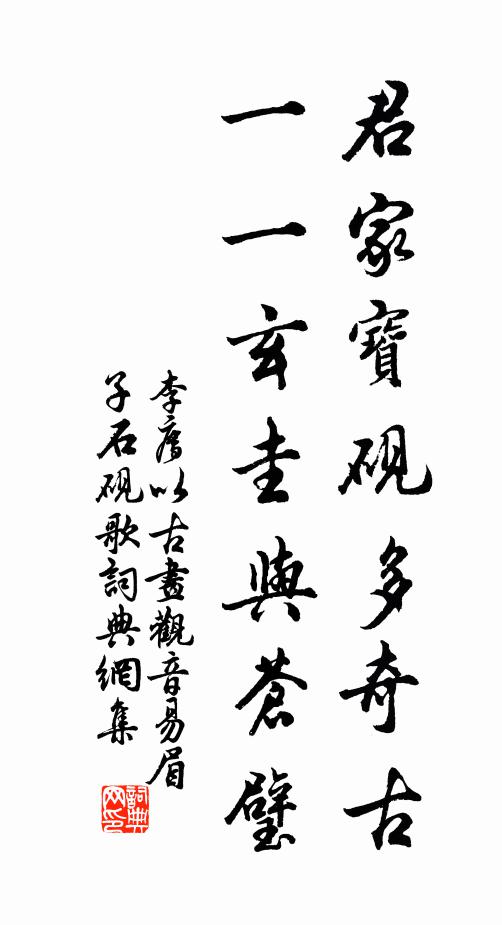 君家寶硯多奇古
一一玄圭與蒼璧
李廌以古畫觀音易眉
子石硯歌詞典網集
詞典网印